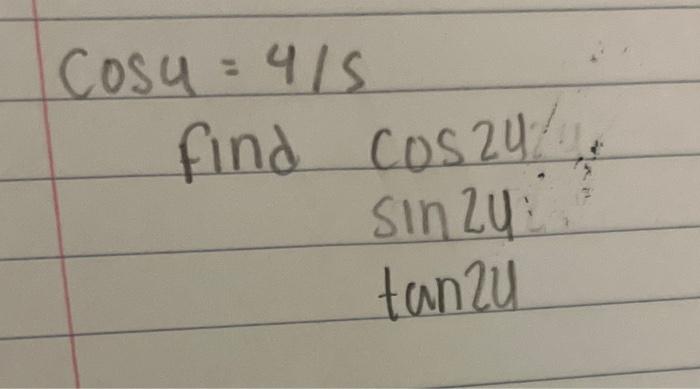 cosu = 4/5
find cos2u
sin2u
tan2u